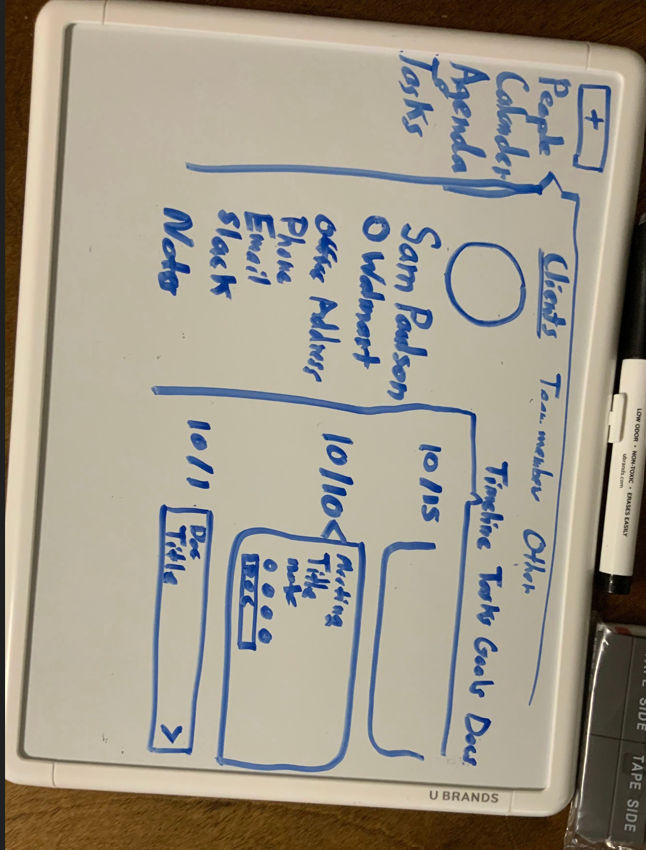 +
People
Calander
Agenda
Tasks
Clients Team member Other
Sam Paulson
Walmart
Office Address
Phone
Email
Slack
Notes
Timeline Tasks Goals Docs
10/15
10/10
Meeting
Title
note
DOC
10/1
Doc
Title
>
U BRANDS
LOW ODOR • NON-TOXIC • ERASES EASILY
ubrands.com
TAPE SIDE
TAPE SIDE